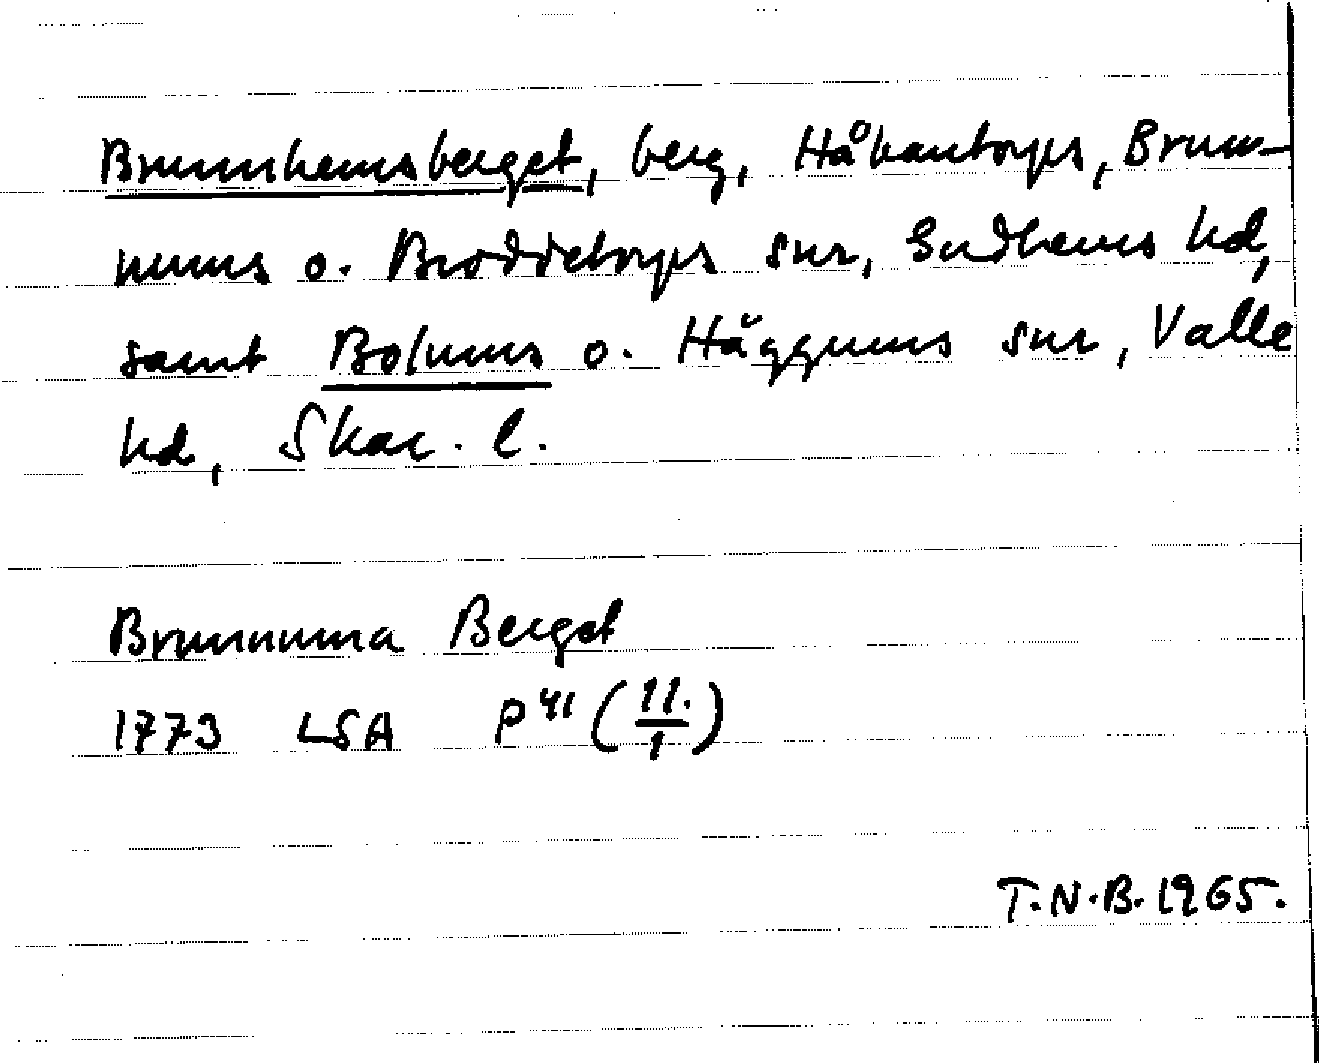 Brunnhemsberget, berg, Håkantorps, Brun-
nums o. Broddetorps snr, Gudhems hd,
samt Bolums o. Häggums snr, Valle
hd, Skar. l.
Brunnuma Berget
1773 LSA P41 (11./1)
T.N.B. 1965.